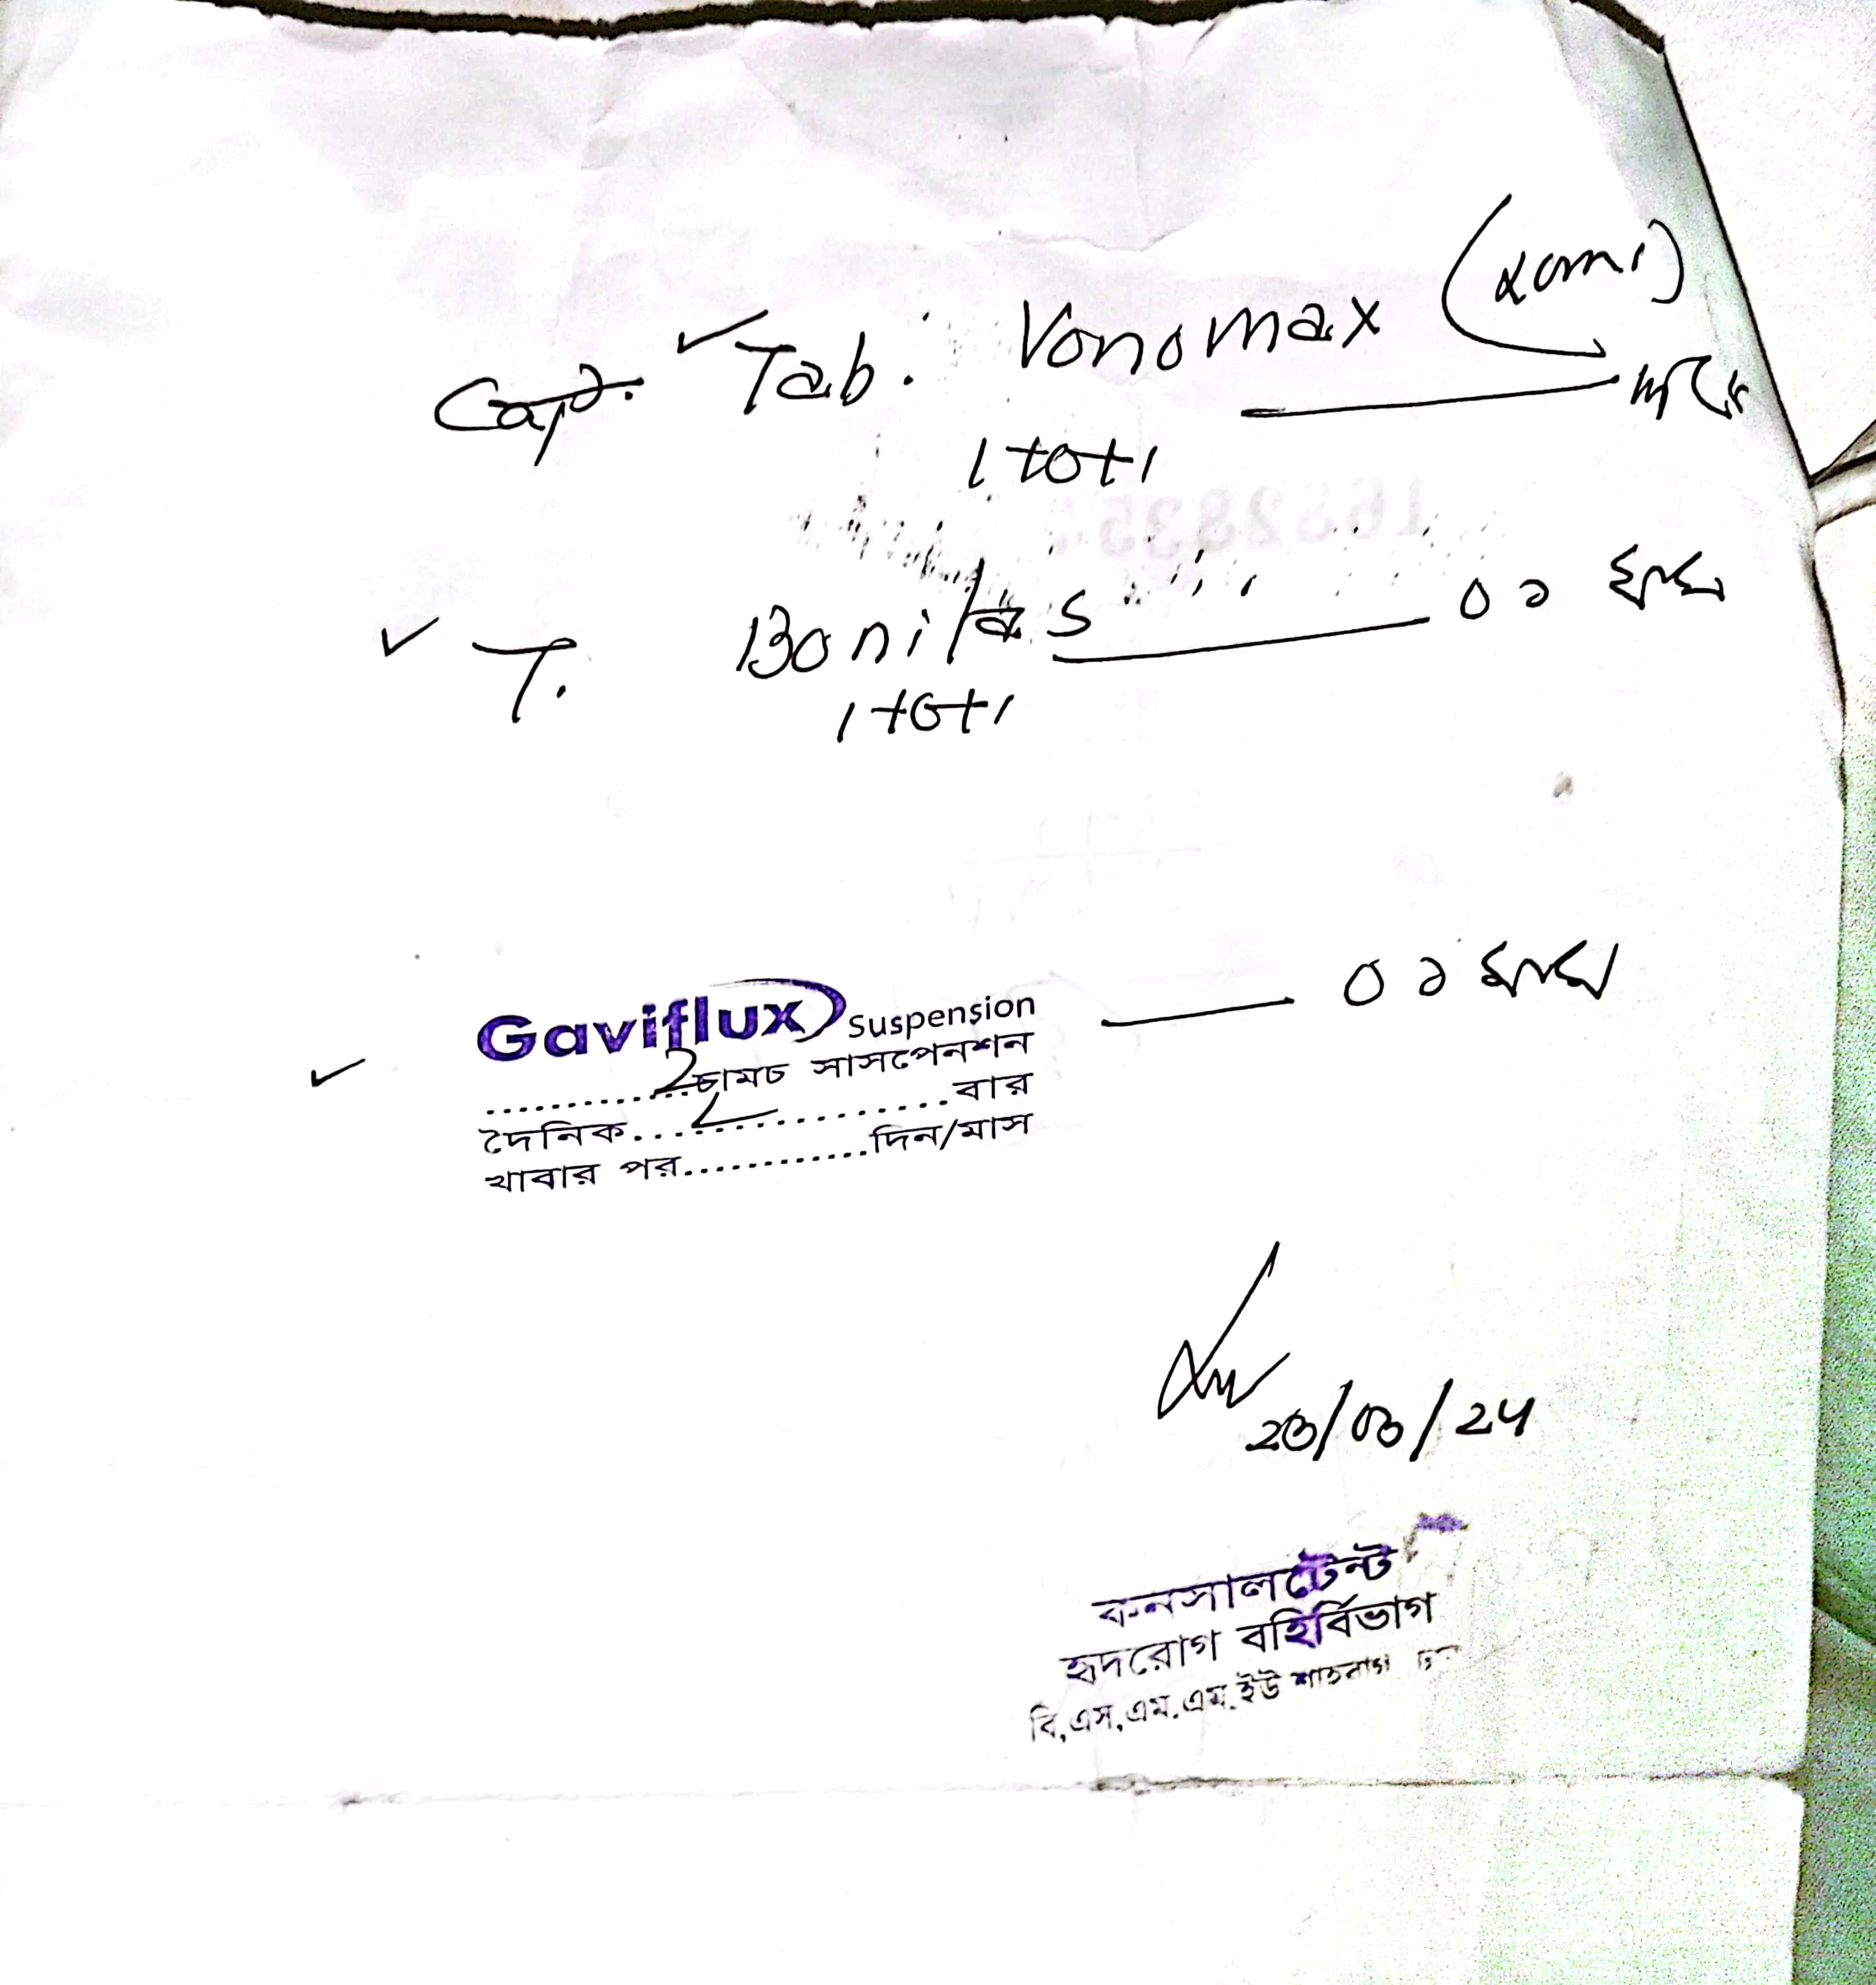 Cap. Tab. Vonomax (20mg)
1+0+1
T. Bonitas ০১ মাস
1+0+1
Gaviflux Suspension ০১ মাস
............2চামচ সাসপেনশন
দৈনিক....2............বার
খাবার পর............দিন/মাস
23/03/24
কনসালটেন্ট
হৃদরোগ বহির্বিভাগ
বি,এস,এম.এম.ইউ শাহবাগ